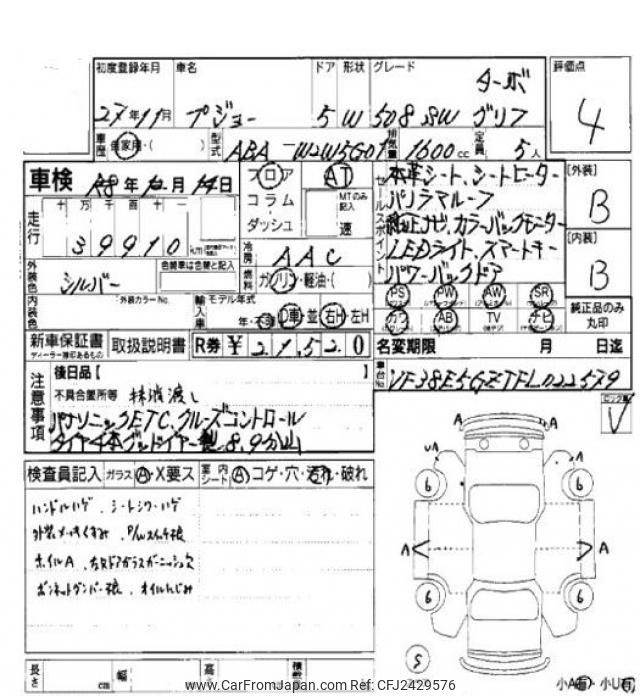 初度登録年月 車名 ドア 形状 グレード 評価点
ターボ
27年11月 プジョー 5 W 508 SW グリフ 4
車歴 自家用・( ) 型式 ABA-W2W5G01 排気量 1600cc 定員 5人
車検 R8年12月14日 フロア AT
コラム・ダッシュ MTのみ記入 速
セールスポイント
本革シート、シートヒーター
パノラマルーフ
純正ナビ、カラーバックモニター
LEDライト、スマートキー
パワーバックドア
[外装] B
[内装] B
純正品のみ丸印
走行 十 万 千 百 十 一
39910
冷房 AAC
外装色 シルバー 色替車は色替と記入
燃料 ガソリン・軽油・( )
PS PW AW SR
カワ AB TV ナビ
内装色 外装カラーNo. 輸入車 モデル年式
年・不明 D車 並 右H 左H
新車保証書 ディーラー捺印あるもの 取扱説明書 R券 ¥ 2,152 0
名変期限 月 日迄
車台No. VF38E5GZTFL022579
注意事項 後日品【 】
不具合箇所等
パナソニックETC、クルーズコントロール
タイヤ4本グッドイヤー製 8,9分山
検査員記入 ガラス A・X要ス 室内シート A コゲ・穴・汚れ・破れ
ハンドルハゲ、シートシワ・ハゲ
外装メッキくすみ、P/Wスイッチ
ホイルA、右Rドアガラスガーニッシュ欠
ボンネットダンパー、オイルにじみ
A A
A A
6 6
A A
6 6
S
長さ cm 幅 高さ
小A 小U
www.CarFromJapan.com Ref: CFJ2429576